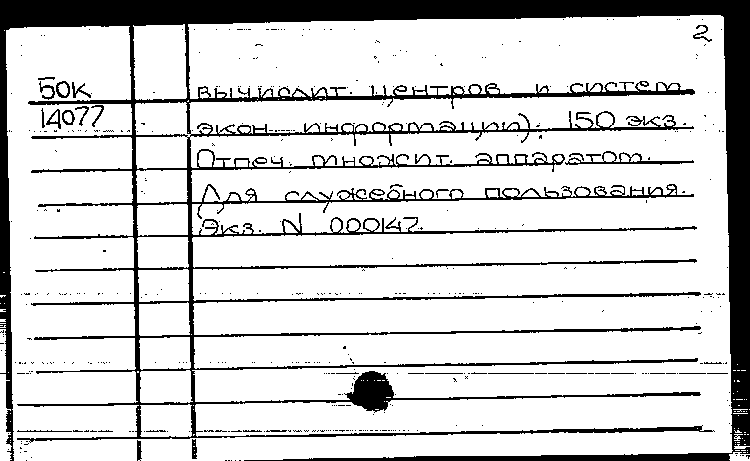 2
50К вычислит. центров и систем
14077 экон. информации). 150 экз.
Отпеч. множит. аппаратом.
Для служебного пользования.
Экз. N 000147.